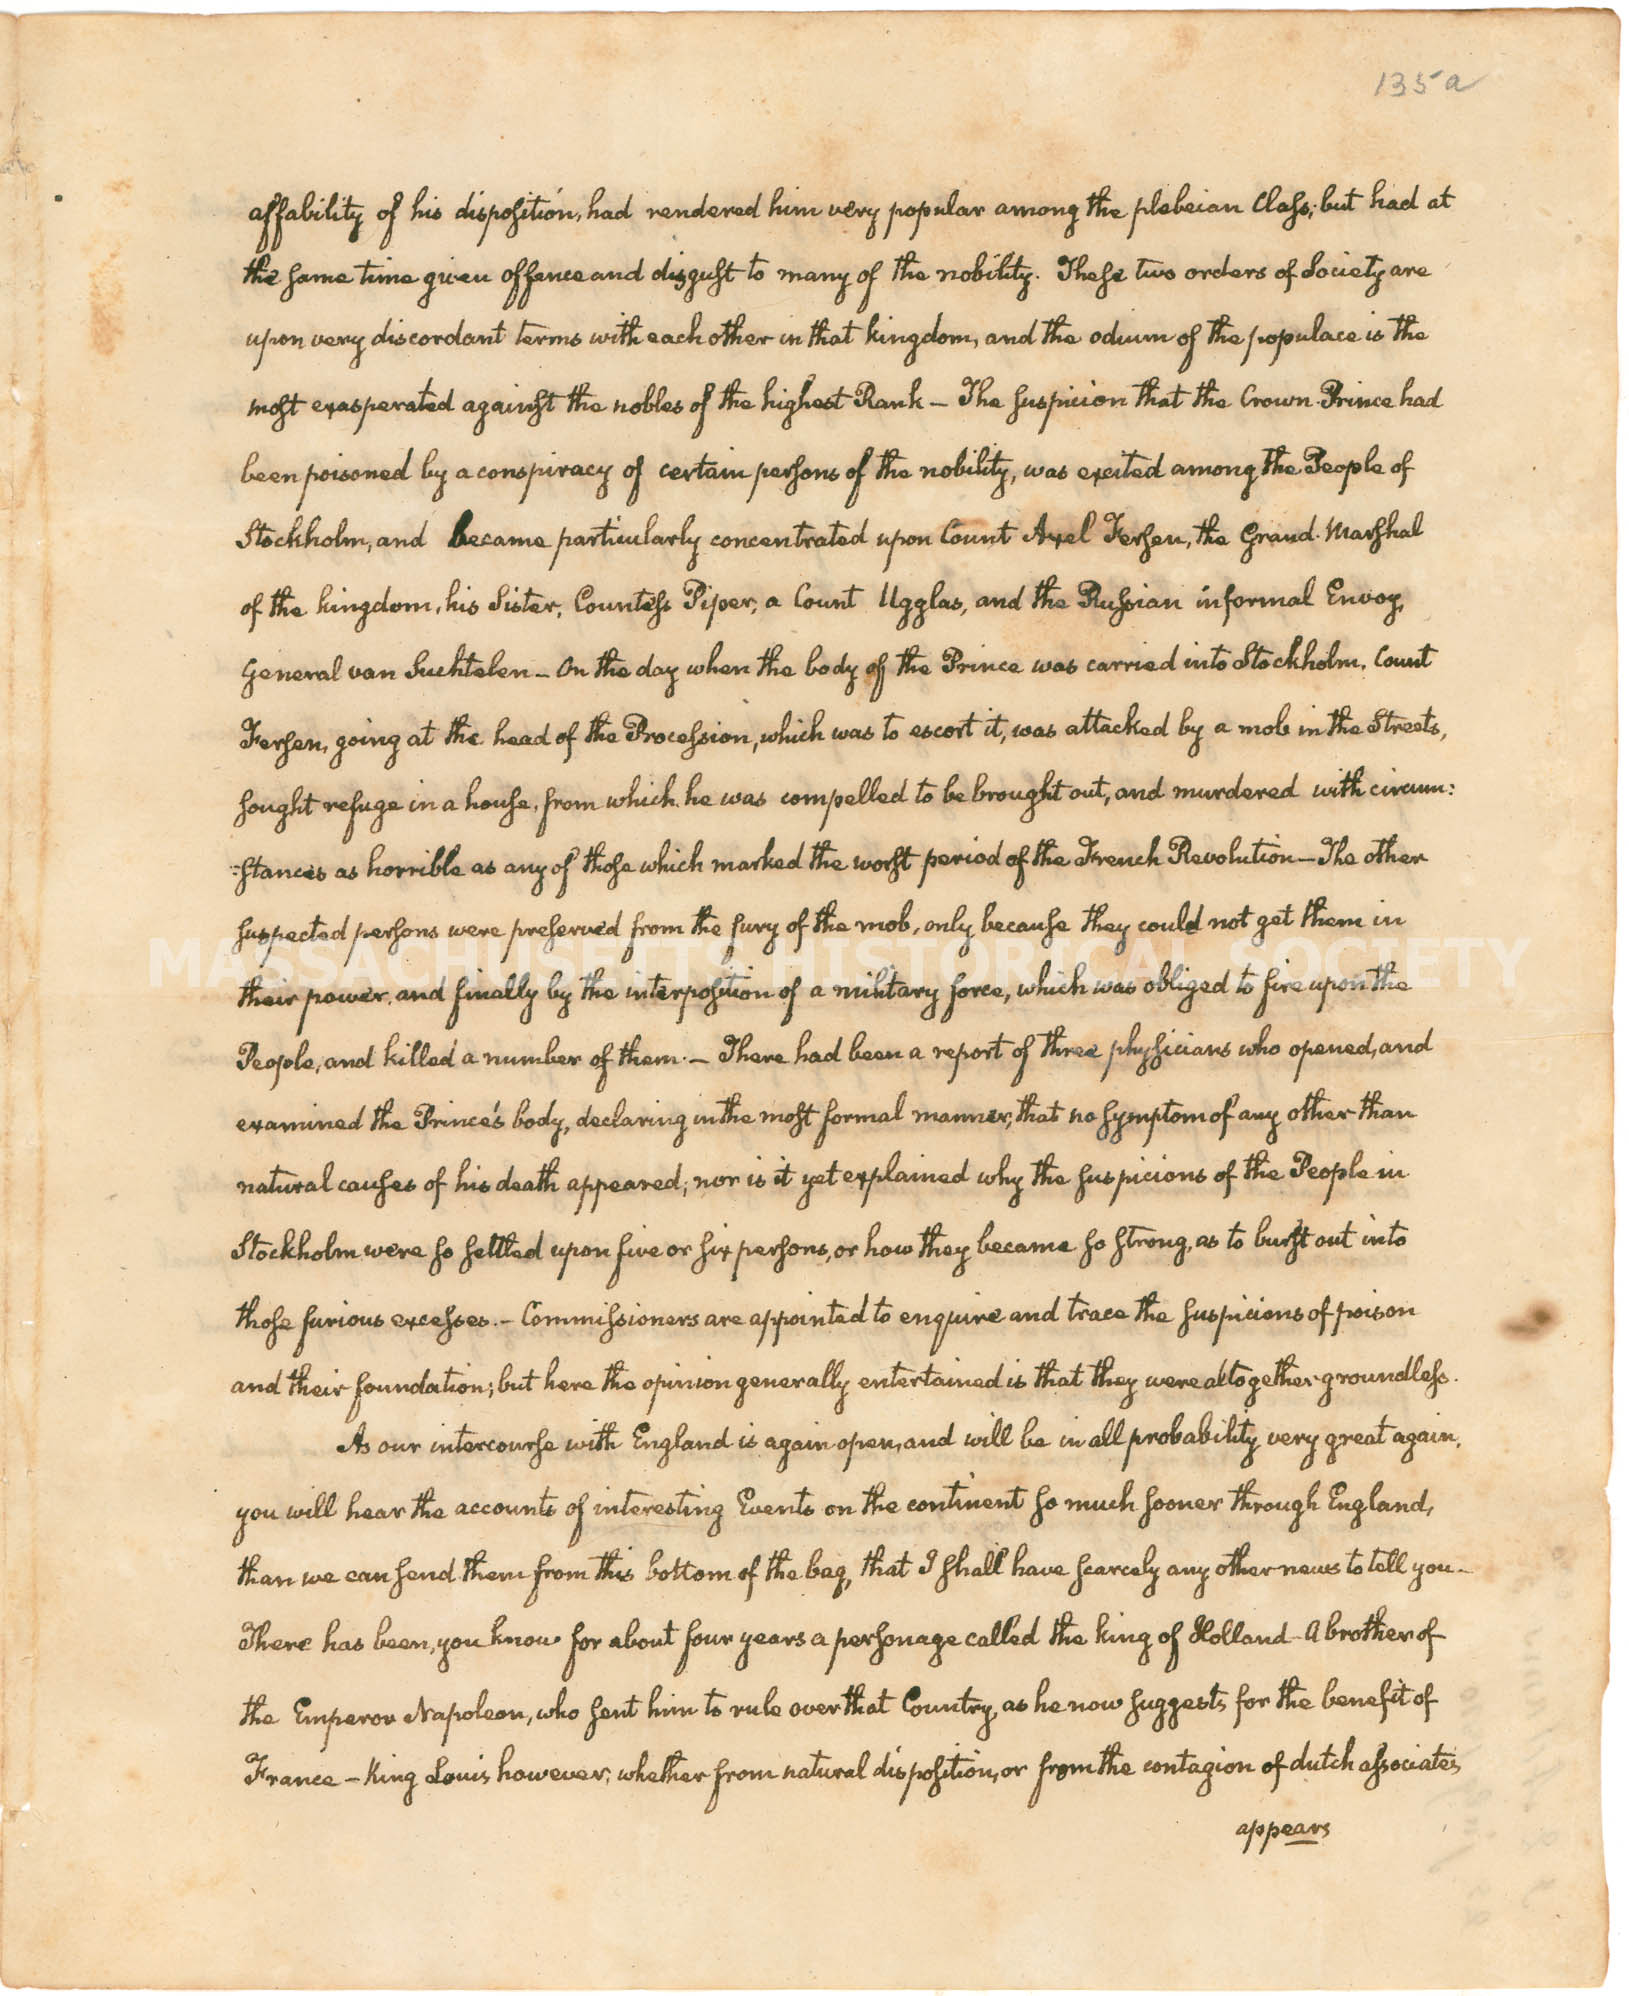 135a
affability of his disposition, had rendered him very popular among the plebeian Class; but had at
the same time given offence and disgust to many of the nobility. These two orders of Society are
upon very discordant terms with each other in that kingdom, and the odium of the populace is the
most exasperated against the nobles of the highest Rank — The suspicion that the Crown-Prince had
been poisoned by a conspiracy of certain persons of the nobility, was excited among the People of
Stockholm, and became particularly concentrated upon Count Axel Fersen, the Grand-Marshal
of the kingdom, his Sister, Countess Piper, a Count Ugglas, and the Russian informal Envoy,
General van Suchtelen — On the day when the body of the Prince was carried into Stockholm, Count
Fersen, going at the head of the Procession, which was to escort it, was attacked by a mob in the Streets,
sought refuge in a house, from which he was compelled to be brought out, and murdered with circum:
:stances as horrible as any of those which marked the worst period of the French Revolution — The other
suspected persons were preserved from the fury of the mob, only because they could not get them in
MASSACHUSETTS HISTORICAL SOCIETY
their power, and finally by the interposition of a military force, which was obliged to fire upon the
People, and killed a number of them. — There had been a report of three physicians who opened, and
examined the Prince's body, declaring in the most formal manner, that no symptom of any other than
natural causes of his death appeared; nor is it yet explained why the suspicions of the People in
Stockholm were so settled upon five or six persons, or how they became so strong, as to burst out into
those furious excesses. — Commissioners are appointed to enquire and trace the suspicions of poison
and their foundation; but here the opinion generally entertained is that they were altogether groundless.
As our intercourse with England is again open, and will be in all probability very great again,
you will hear the accounts of interesting Events on the continent so much sooner through England,
than we can send them from this bottom of the bag, that I shall have scarcely any other news to tell you —
There has been, you know for about four years a personage called the king of Holland — A brother of
the Emperor Napoleon, who sent him to rule over that Country, as he now suggests for the benefit of
France — King Louis however, whether from natural disposition, or from the contagion of dutch associates
appears